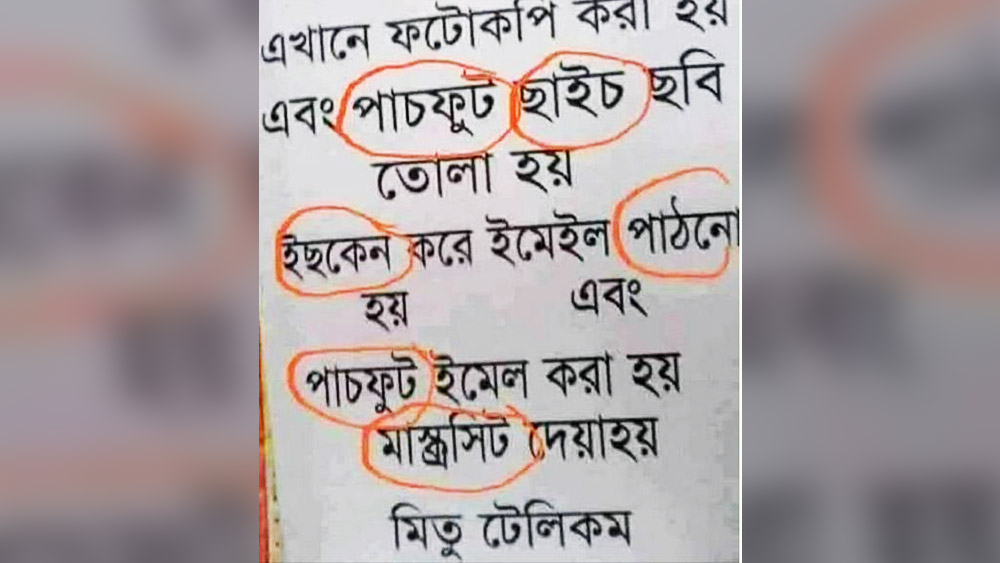 এখানে ফটোকপি করা হয়
এবং পাচফুট ছাইচ ছবি
তোলা হয়
ইছকেন করে ইমেইল পাঠনো
হয় এবং
পাচফুট ইমেল করা হয়
মাস্ক্রসিট দেয়াহয়
মিতু টেলিকম